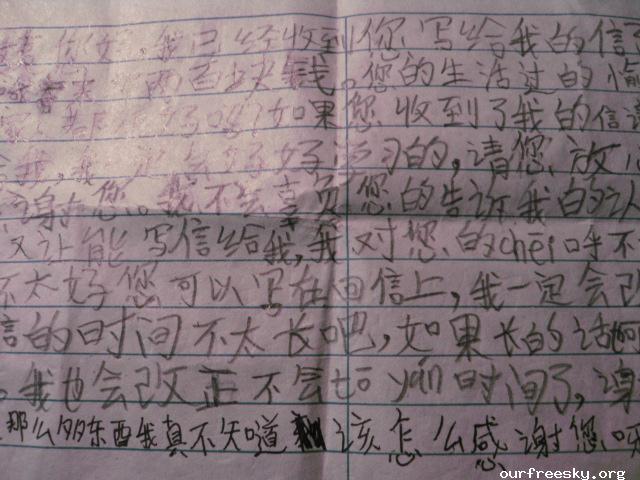 你好,我已经收到您写给我的信
两百块钱。您的生活过的
好吗?如果您收到了我的信请
我,我一定会好好学习的,请您放
谢谢您。我不会辜负您的告诉我的
又让能写信给我,我对您的chēi呼不
不太好您可以写在回信上,我一定会改
信的时间不太长吧,如果长的话
。我也会改正不会tō yán时间了,谢
那么多东西我真不知道该怎么感谢您,
ourfreesky.org